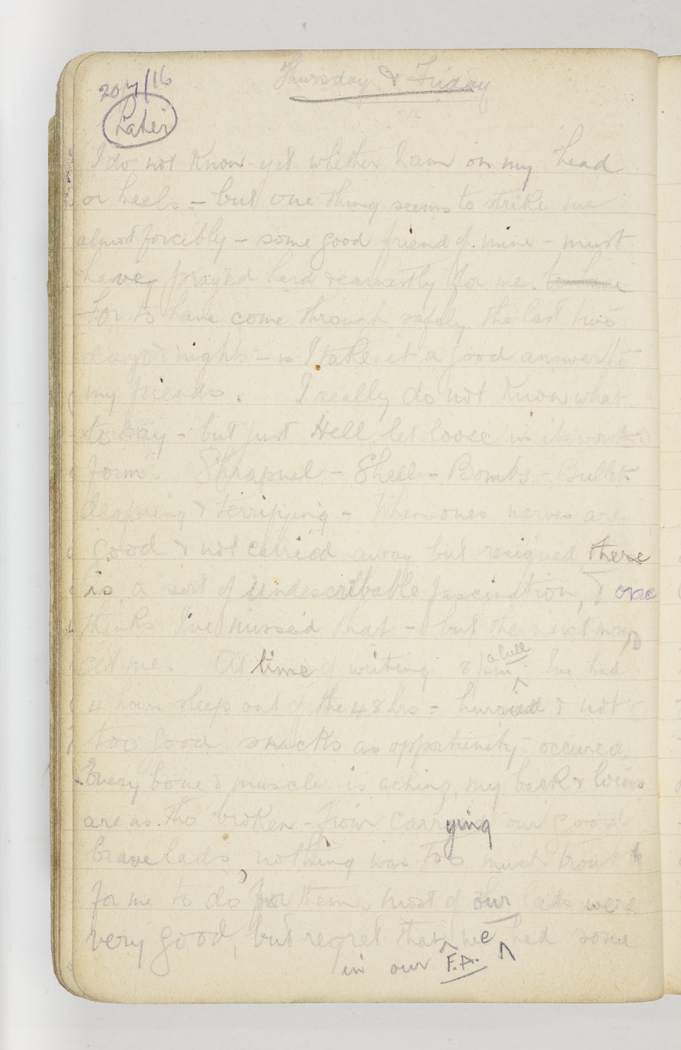 Thursday & Friday
20/7/16
Later
I do not know yet whether I am on my head
or heels - but one thing seems to strike me
almost forcibly - some good friend of mine - must
have prayed hard & earnestly for me.
For to have come through safely the last two
days & nights - is I take it a good answer to
my friends. I really do not know what
to say - but just Hell let loose in its worst
form. Shrapnel - Shell - Bombs - Bullets
& terrifying - When ones nerves are
good & not carried away but resigned there
is a sort of undescribable fascination, & one
thinks I've missed that - but the next may
get me. At time of writing 8 pm a lull I've had
4 hours sleep out of the 48 hrs - hurried & not
too good snacks as opportunity occured
Every bone & muscle is aching, my back & loins
are as tho broken - from carrying our good
brave lads, nothing was too much
for me to do for them, most of our lads were
very good, but regret that we had some
in our F.A.